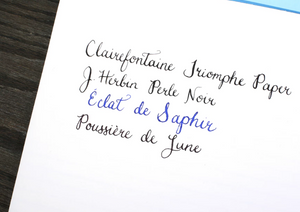 Clairefontaine Triomphe Paper
J. Herbin Perle Noir
Éclat de Saphir
Poussière de Lune